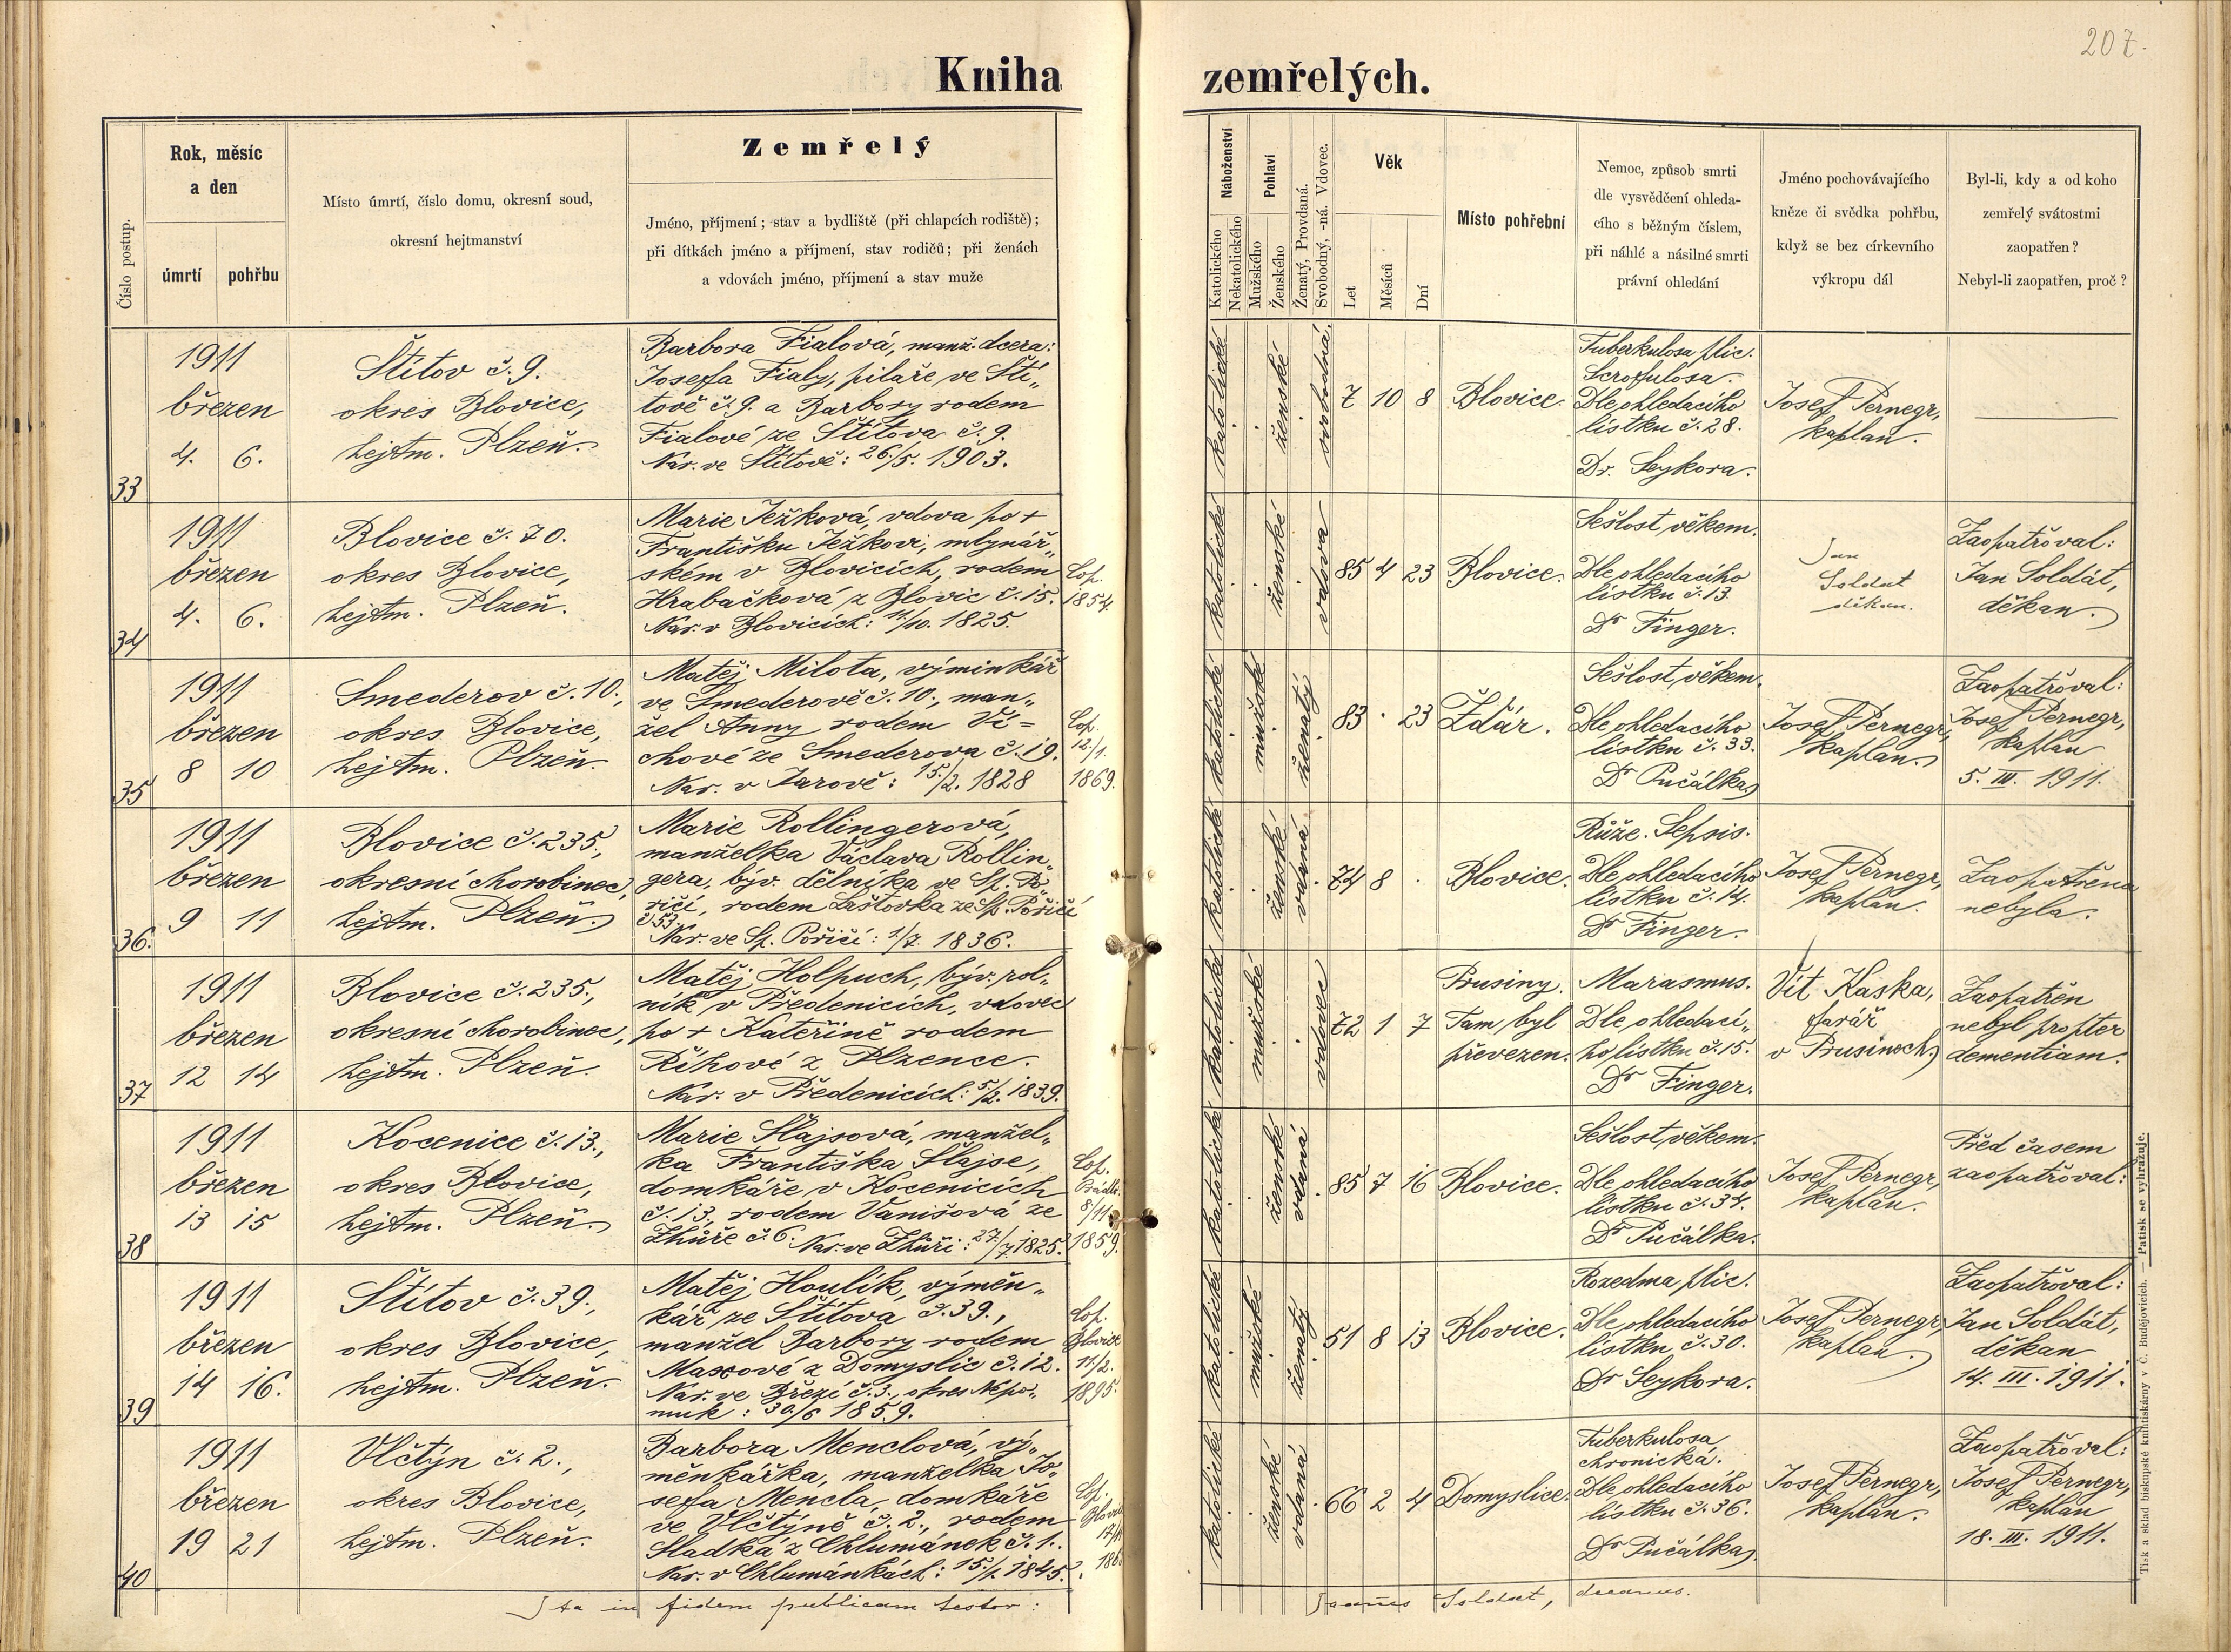 207.
Kniha zemřelých.
Číslo postup.
Rok, měsíc
a den
úmrtí
pohřbu
Místo úmrtí, číslo domu, okresní soud,
okresní hejtmanství
Zemřelý
Jméno, příjmení; stav a bydliště (při chlapcích rodiště);
při dítkách jméno a příjmení, stav rodičů; při ženách
a vdovách jméno, příjmení a stav muže
Náboženství
Katolického
Nekatolického
Pohlaví
Mužského
Ženského
Ženatý, Provdaná.
Svobodný, -ná. Vdovec.
Věk
Let
Měsíců
Dní
Místo pohřební
Nemoc, způsob smrti
dle vysvědčení ohleda-
cího s běžným číslem,
při náhlé a násilné smrti
právní ohledání
Jméno pochovávajícího
kněze či svědka pohřbu,
když se bez církevního
výkropu dál
Byl-li, kdy a od koho
zemřelý svátostmi
zaopatřen?
Nebyl-li zaopatřen, proč?
33
1911
březen
4. 6.
Štítov č. 9.
okres Blovice,
hejtm. Plzeň.
Barbora Fialová, manž. dcera:
Josefa Fialy, pilaře ve Ští„
tově č. 9. a Barbory rodem
Fialové ze Štítova č. 9.
Nar. ve Štítově: 26./5. 1903.
katolické
ženské
svobodná
7 10 8
Blovice.
Tuberkulosa plic.
Scrofulosa.
Dle ohledacího
lístku č. 28.
Dr. Seykora.
Josef Pernegr,
kaplan.
34
1911
březen
4. 6.
Blovice č. 70.
okres Blovice,
hejtm. Plzeň.
Marie Ježková, vdova po +
Františku Ježkovi, mlynář„
ském v Blovicích, rodem
Hrabačková z Blovic č. 15.
Nar. v Blovicích: 11./10. 1825.
Cop.
1854.
katolické
ženské
vdova
85 4 23
Blovice.
Sešlost věkem.
Dle ohledacího
lístku č. 13.
Dr Finger.
Jan
Soldat
děkan.
Zaopatřoval:
Jan Soldát,
děkan.
35
1911
březen
8 10
Smederov č. 10.,
okres Blovice,
hejtm. Plzeň.
Matěj Milota, výminkář
ve Smederově č. 10., man„
žel Anny rodem Ví=
chové ze Smederova č. 19.
Nar. v Jarově: 15./2. 1828
Cop.
12./1.
1869.
katolické
mužské
ženatý
83 · 23
Ždár.
Sešlost věkem.
Dle ohledacího
lístku č. 33.
Dr Pučálka
Josef Pernegr,
kaplan.
Zaopatřoval:
Josef Pernegr,
kaplan
5. III. 1911.
36.
1911
březen
9 11
Blovice č. 235,
okresní chorobinec,
hejtm. Plzeň.
Marie Rollingerová,
manželka Václava Rollin„
gera, býv. dělníka ve Sp. Po„
říčí, rodem Laštovka ze Sp. Poříčí
č. 53.
Nar. ve Sp. Poříčí: 1/7. 1836.
katolické
ženské
vdaná
74 8 ·
Blovice.
Růže. Sepsis.
Dle ohledacího
lístku č. 14.
Dr Finger.
Josef Pernegr,
kaplan.
Zaopatřena
nebyla.
37
1911
březen
12 14
Blovice č. 235.,
okresní chorobinec,
hejtm. Plzeň.
Matěj Holpuch, býv. rol„
ník v Předenicích, vdovec
po + Kateřině rodem
Říhové z Plzence.
Nar. v Předenicích: 5./2. 1839.
katolické
mužské
vdovec
72 1 7
Prusiny.
Tam byl
převezen.
Marasmus.
Dle ohledací„
ho lístku č. 15.
Dr Finger.
Vít Kaska,
farář
v Prusinech
Zaopatřen
nebyl propter
dementiam.
38
1911
březen
13 15
Kocenice č. 13.,
okres Blovice,
hejtm. Plzeň.
Marie Šlajsová, manžel„
ka Františka Šlajse,
domkáře v Kocenicích
č. 13, rodem Vanišová ze
Zhůře č. 6. Nar. ve Zhůři: 27./7. 1825.
Cop.
8/11
1859.
katolické
ženské
vdaná
85 7 16
Blovice.
Sešlost věkem.
Dle ohledacího
lístku č. 34.
Dr Pučálka.
Josef Pernegr,
kaplan.
Před časem
zaopatřoval:
39
1911
březen
14 16.
Štítov č. 39.,
okres Blovice,
hejtm. Plzeň.
Matěj Houlík, výměn„
kář ze Štítova č. 39.,
manžel Barbory rodem
Maxové z Domyslic č. 12.
Nar. ve Březí č. 3., okres Nepo„
muk: 30./6 1859.
Cop.
Blovice
11/2.
1895.
katolické
mužské
ženatý
51 8 13
Blovice.
Rozedma plic.
Dle ohledacího
lístku č. 30.
Dr Seykora.
Josef Pernegr,
kaplan.
Zaopatřoval:
Jan Soldát,
děkan
14. III. 1911.
40
1911
březen
19 21
Vlčtýn č. 2.,
okres Blovice,
hejtm. Plzeň.
Barbora Menclová, vý„
měnkářka, manželka Jo„
sefa Mencla, domkáře
ve Vlčtýně č. 2., rodem
Sladká z Chlumánek č. 1.
Nar. v Chlumánkách: 15./1. 1845.
Cop.
katolické
ženské
vdaná
66 2 4
Domyslice.
Tuberkulosa
chronická.
Dle ohledacího
lístku č. 36.
Dr Pučálka
Josef Pernegr,
kaplan.
Zaopatřoval:
Josef Pernegr,
kaplan
18. III. 1911.
Ita in fidem publicam testor: Joannes Soldat, decanus.
Tisk a sklad biskupské knihtiskárny v Č. Budějovicích. — Patisk se vyhražuje.